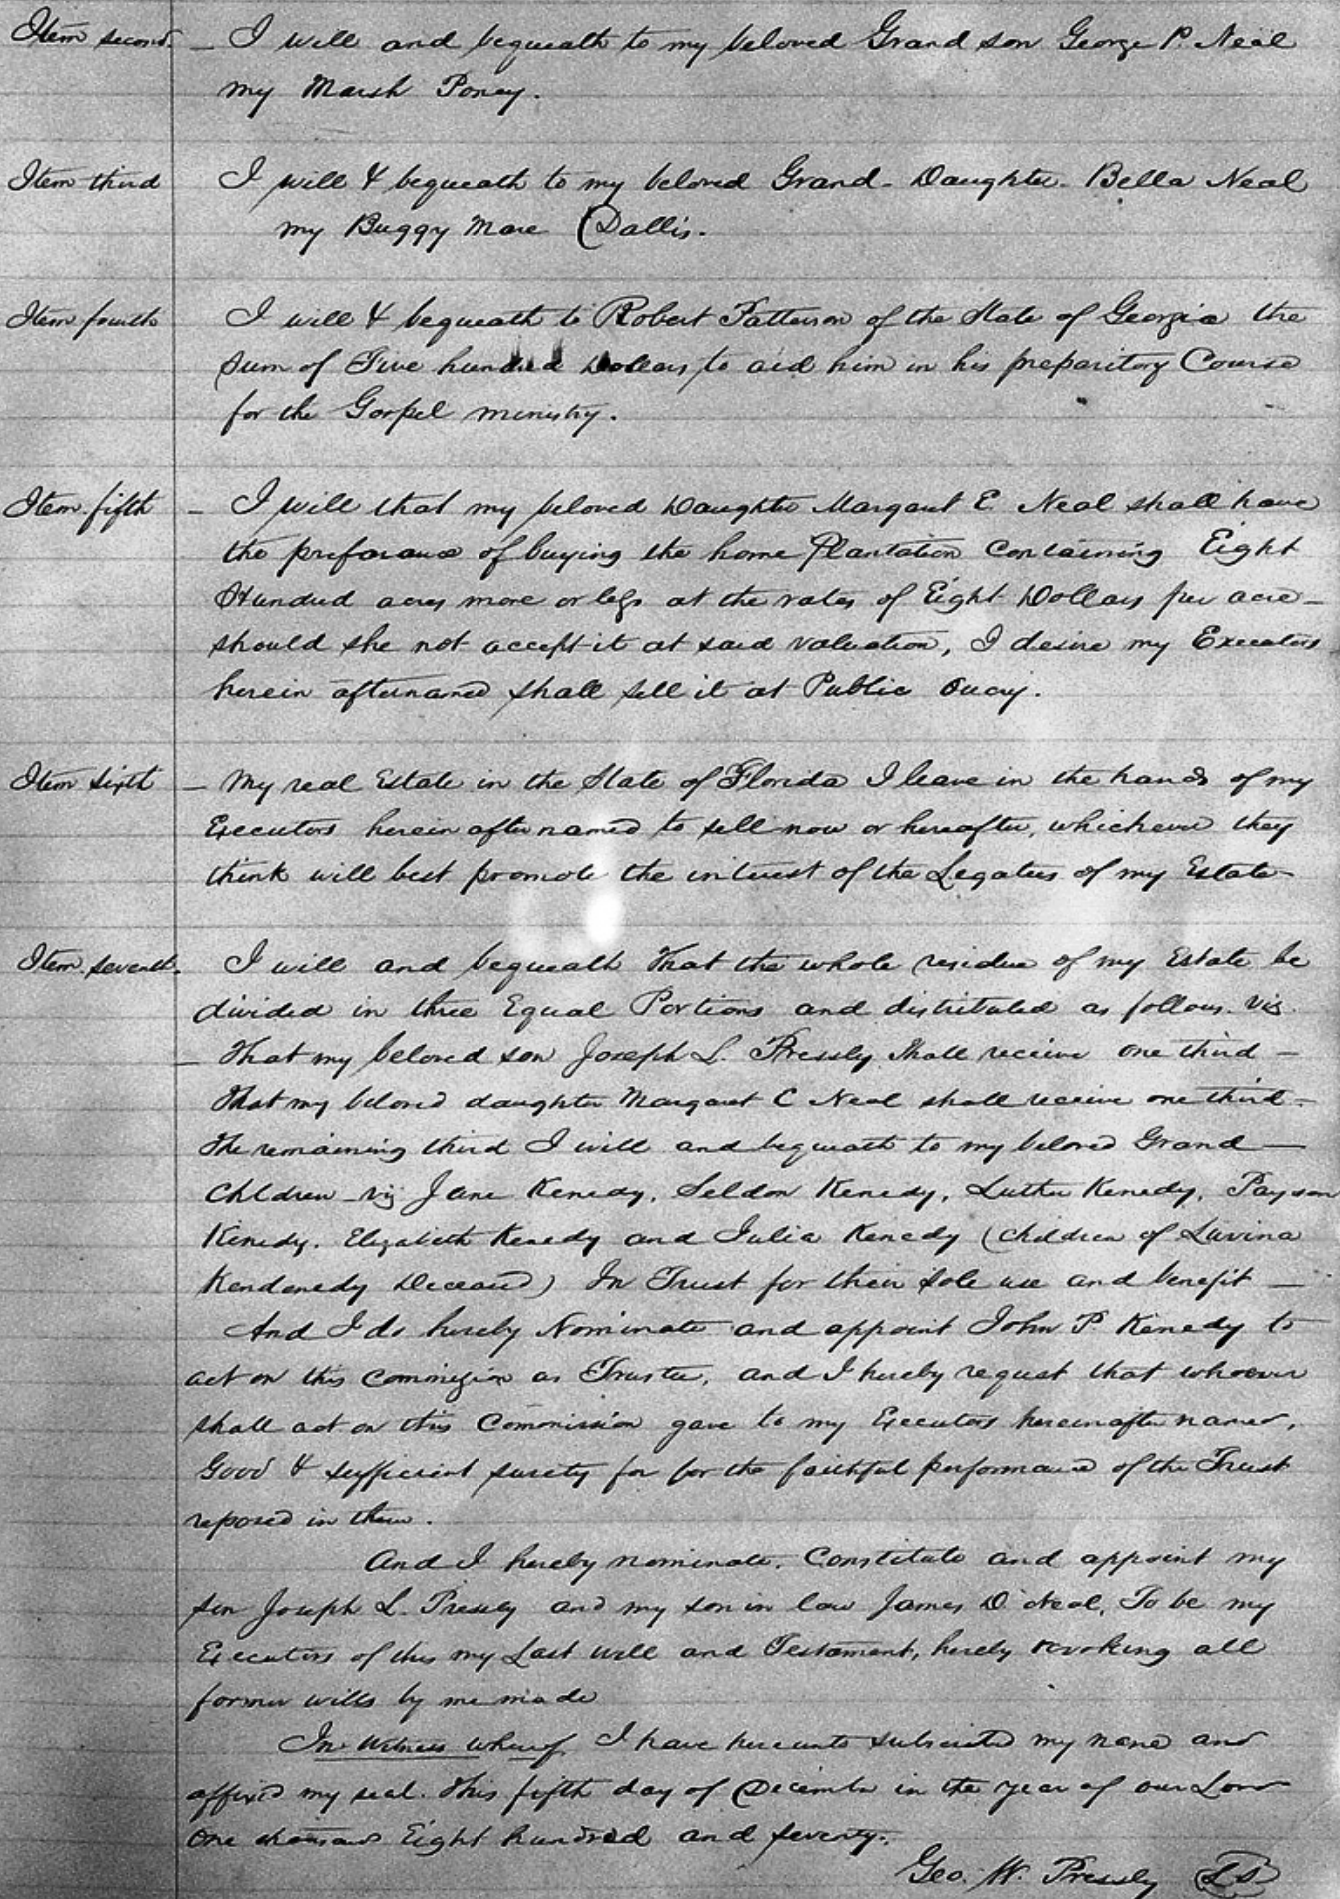 Item second. – I will and bequeath to my beloved Grand son George P. Neal
my Marsh Poney.
Item third I will & bequeath to my beloved Grand- Daughter- Bella Neal
my Buggy Mare (Dallis.
Item fourth I will & bequeath to Robert Patterson of the State of Georgia the
sum of Five hundred Dollars to aid him in his preparitory Course
for the Gospel ministry.
Item fifth – I will that my beloved Daughter Margaret E. Neal shall have
the preforance of buying the home Plantation Containing Eight
Hundred acres more or less at the rates of Eight Dollars per acre –
should she not accept it at said valuation, I desire my Executors
herein afternamed shall sell it at Public
Item sixth – My real Estate in the State of Florida I leave in the hands of my
Executors herein after named to sell now or hereafter, whichever they
think will best promote the interest of the Legatees of my Estate –
Item seventh. I will and bequeath That the whole residue of my Estate be
divided in three Equal Portions and distributed as follows. viz.
– That my beloved son Joseph L. Pressly shall receive one third –
That my beloved daughter Margaret C Neal shall receive one third –
The remaining third I will and bequeath to my beloved Grand –
Children – viz Jane Kenedy, Seldon Kenedy, Luther Kenedy, Payson
Kenedy. Elizabeth Kenedy and Julia Kenedy (Children of Lavina
Kendenedy Deceased) In Trust for their sole use and benefit –
And I do hereby Nominate and appoint John P. Kenedy to
act on this commission as Trustee, and I hereby request that whoever
shall act on this Commission gave to my Executors hereinafter named,
Good & sufficient surety for for the faithful performance of the Trust
reposed in them.
And I hereby nominate, Constitute and appoint my
son Joseph L. Pressly and my son in law James D. Neal, To be my
Executors of this my Last will and Testament, hereby revoking all
former wills by me made
In Witness whereof I have hereunto subscribed my name and
affixed my seal. This fifth day of December in the year of our Lord
One thousand Eight hundred and seventy.
Geo. W. Pressly LS